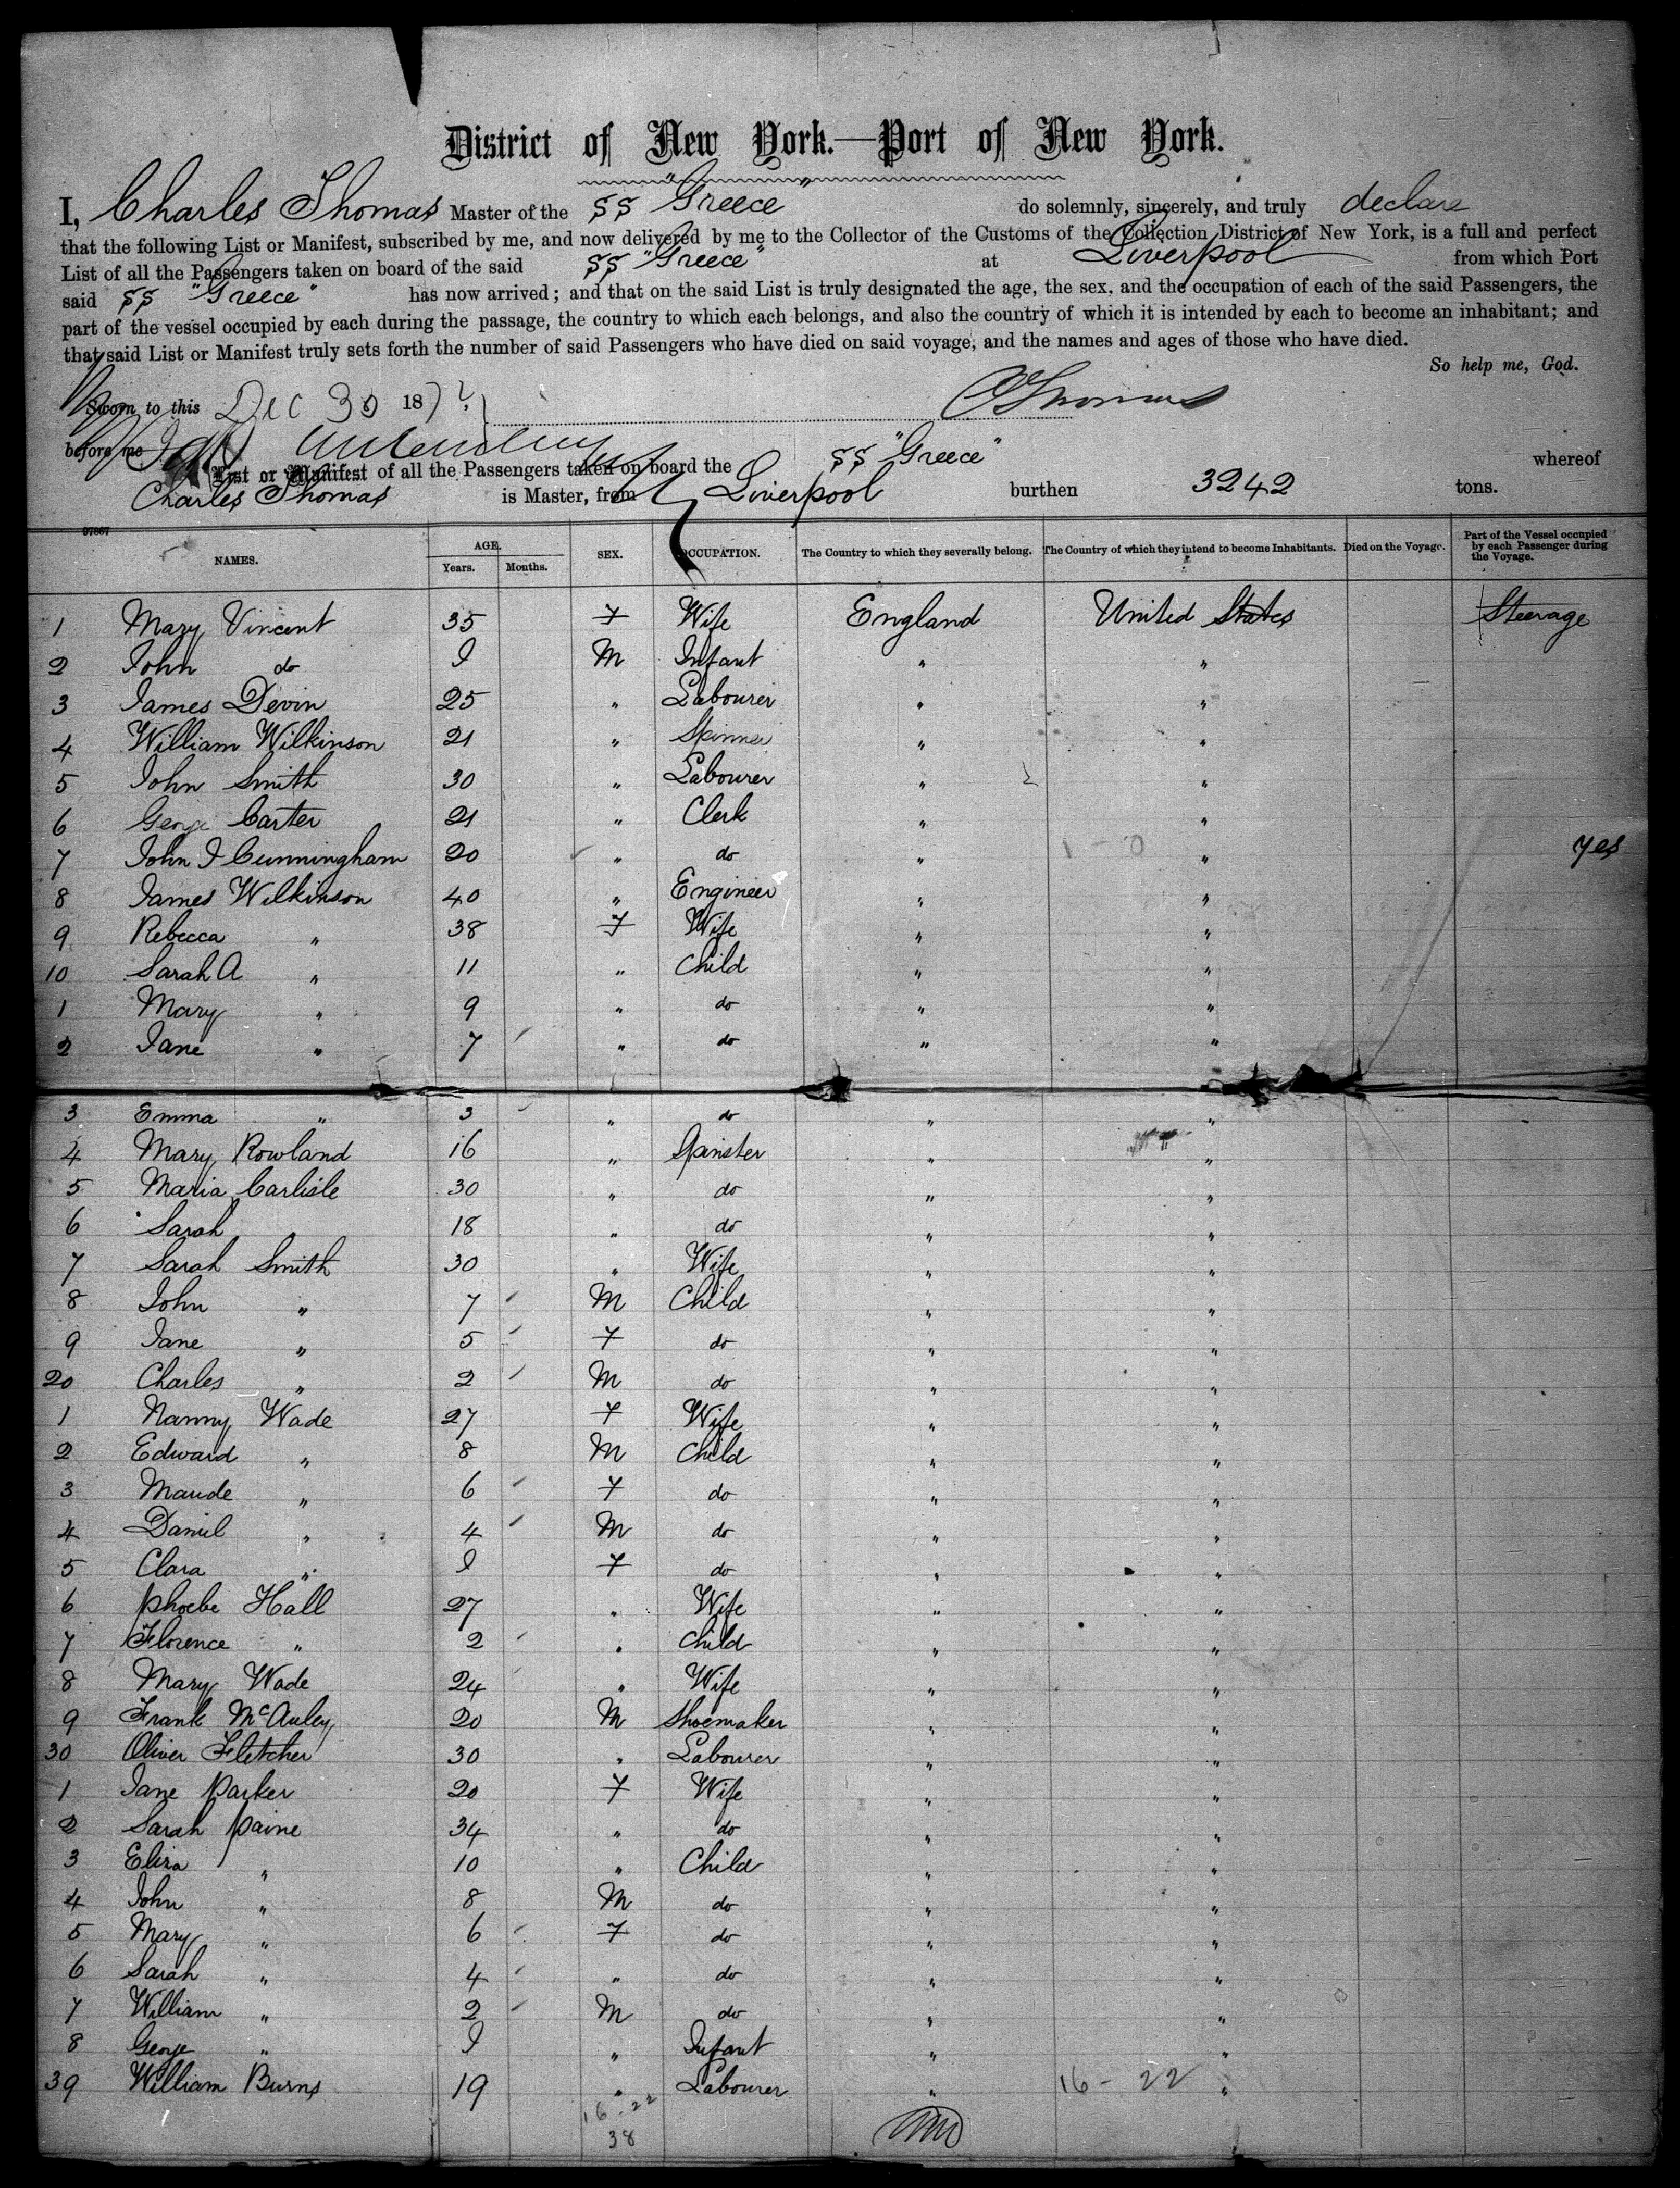 District of New York.—Port of New York.
I, Charles Thomas Master of the SS "Greece" do solemnly, sincerely, and truly declare
that the following List or Manifest, subscribed by me, and now delivered by me to the Collector of the Customs of the Collection District of New York, is a full and perfect
List of all the Passengers taken on board of the said SS "Greece" at Liverpool from which Port
said SS "Greece" has now arrived; and that on the said List is truly designated the age, the sex, and the occupation of each of the said Passengers, the
part of the vessel occupied by each during the passage, the country to which each belongs, and also the country of which it is intended by each to become an inhabitant; and
that said List or Manifest truly sets forth the number of said Passengers who have died on said voyage, and the names and ages of those who have died.
So help me, God.
Sworn to this Dec 30 187 CThomas
before me
List or Manifest of all the Passengers taken on board the SS "Greece" whereof
Charles Thomas is Master, from Liverpool burthen 3242 tons.
97867
NAMES. AGE. Years. Months. SEX. OCCUPATION. The Country to which they severally belong. The Country of which they intend to become Inhabitants. Died on the Voyage. Part of the Vessel occupied by each Passenger during the Voyage.
1 Mary Vincent 35 F Wife England United States Steerage
2 John do I M Infant " "
3 James Devin 25 " Labourer " "
4 William Wilkinson 21 " Spinner " "
5 John Smith 30 " Labourer " "
6 George Carter 21 " Clerk " "
7 John J Cunningham 20 " do " " yes
8 James Wilkinson 40 " Engineer " "
9 Rebecca " 38 F Wife " "
10 Sarah A " 11 " Child " "
1 Mary " 9 " do " "
2 Jane " 7 " do " "
3 Emma " 3 " do " "
4 Mary Rowland 16 " Spinster " "
5 Maria Carlisle 30 " do " "
6 Sarah 18 " do " "
7 Sarah Smith 30 " Wife " "
8 John " 7 M Child " "
9 Jane " 5 F do " "
20 Charles " 2 M do " "
1 Nanny Wade 27 F Wife " "
2 Edward " 8 M Child " "
3 Maude " 6 F do " "
4 Daniel " 4 M do " "
5 Clara " I F do " "
6 Phoebe Hall 27 " Wife " "
7 Florence " 2 " Child " "
8 Mary Wade 24 " Wife " "
9 Frank McAuley 20 M Shoemaker " "
30 Oliver Fletcher 30 " Labourer " "
1 Jane Parker 20 F Wife " "
2 Sarah Paine 34 " do " "
3 Eliza " 10 " Child " "
4 John " 8 M do " "
5 Mary " 6 F do " "
6 Sarah " 4 " do " "
7 William " 2 M do " "
8 George " I " Infant " "
39 William Burns 19 " Labourer " 16 - 22 "
16 - 22
38